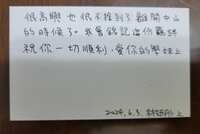 很高興 也很不捨到了離開中山
的時候了。我會銘記這份難時
祝你一切順利,愛你的學妹上
2024.6.3. 上